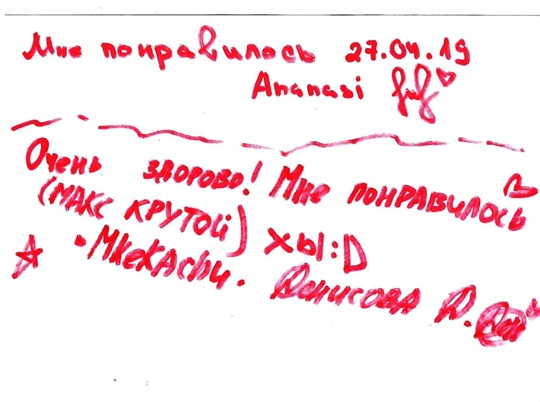 Мне понравилось 27.04.19
Ananasi
Очень здорово! Мне понравилось
(МАКС КРУТОЙ) ХЫ:D
Денисова Д.